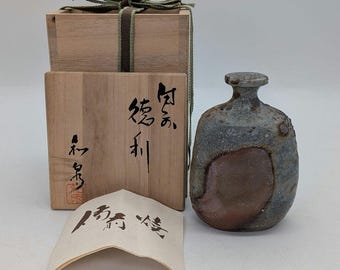 備前
徳利
和泉
備前焼